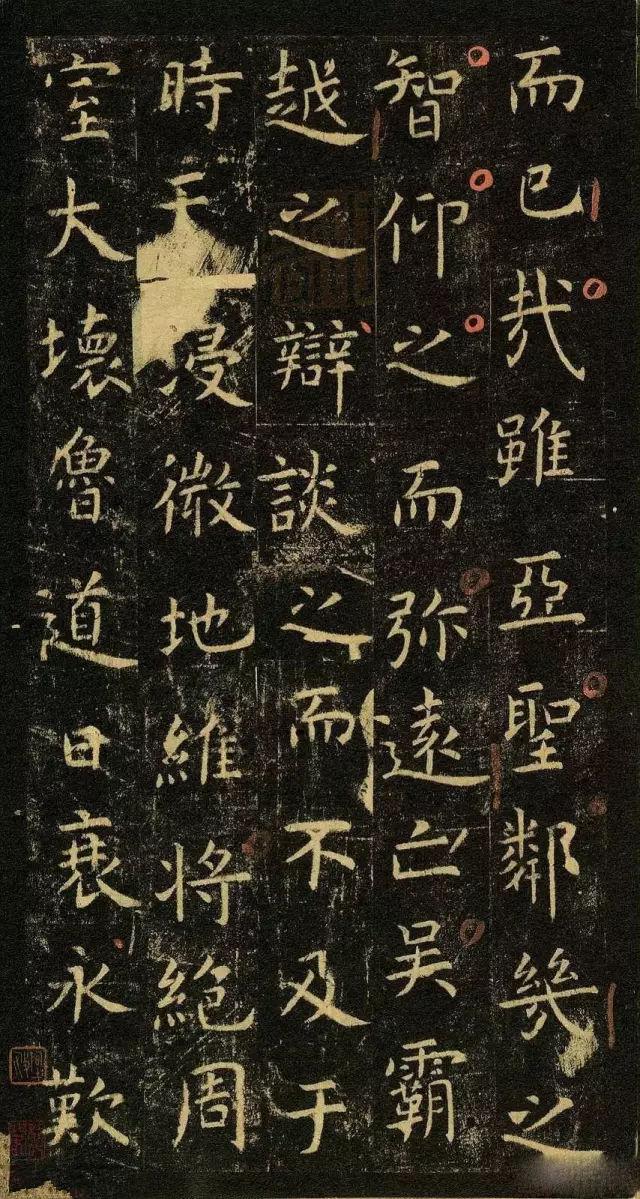 而已哉雖亞聖鄰幾之
智仰之而弥遠亡吴霸
越之辯談之而不及于
時天浸微地維將絕周
室大壞魯道日衰永歎